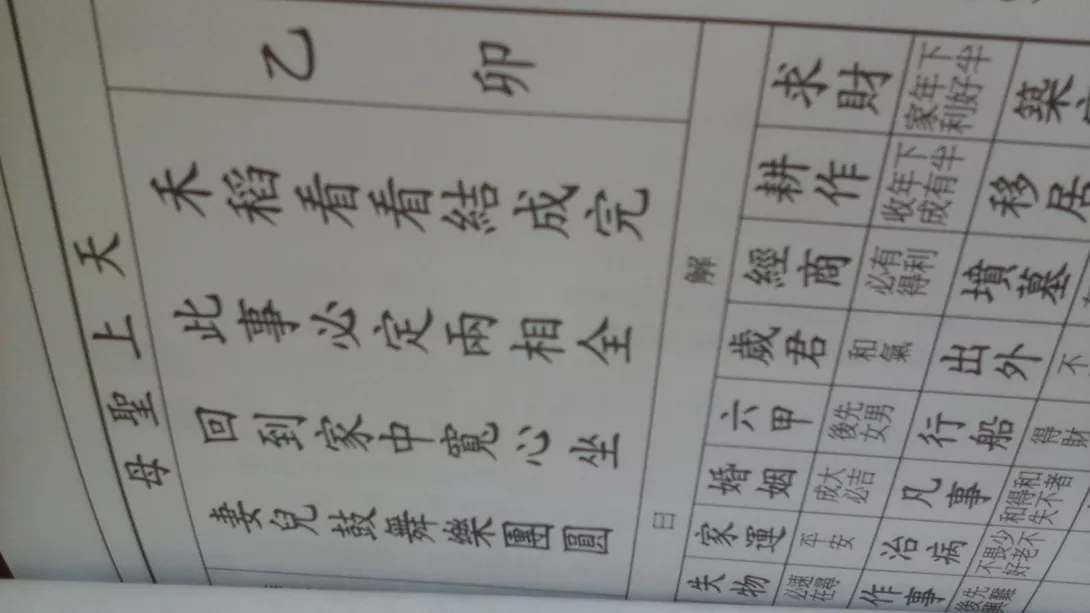 天上聖母
乙卯
禾稻看看結成完
此事必定兩相全
回到家中寬心坐
妻兒鼓舞樂團圓
解曰
求財 下半年好家利
耕作 下半年有收成
經商 有利必得
歲君 和氣
六甲 先男後女
婚姻 大吉必成
家運 平安
失物 速尋必在
築
移居
墳墓
出外 不
行船 得財
凡事 和者得不和失
治病 少不畏老不好
作事